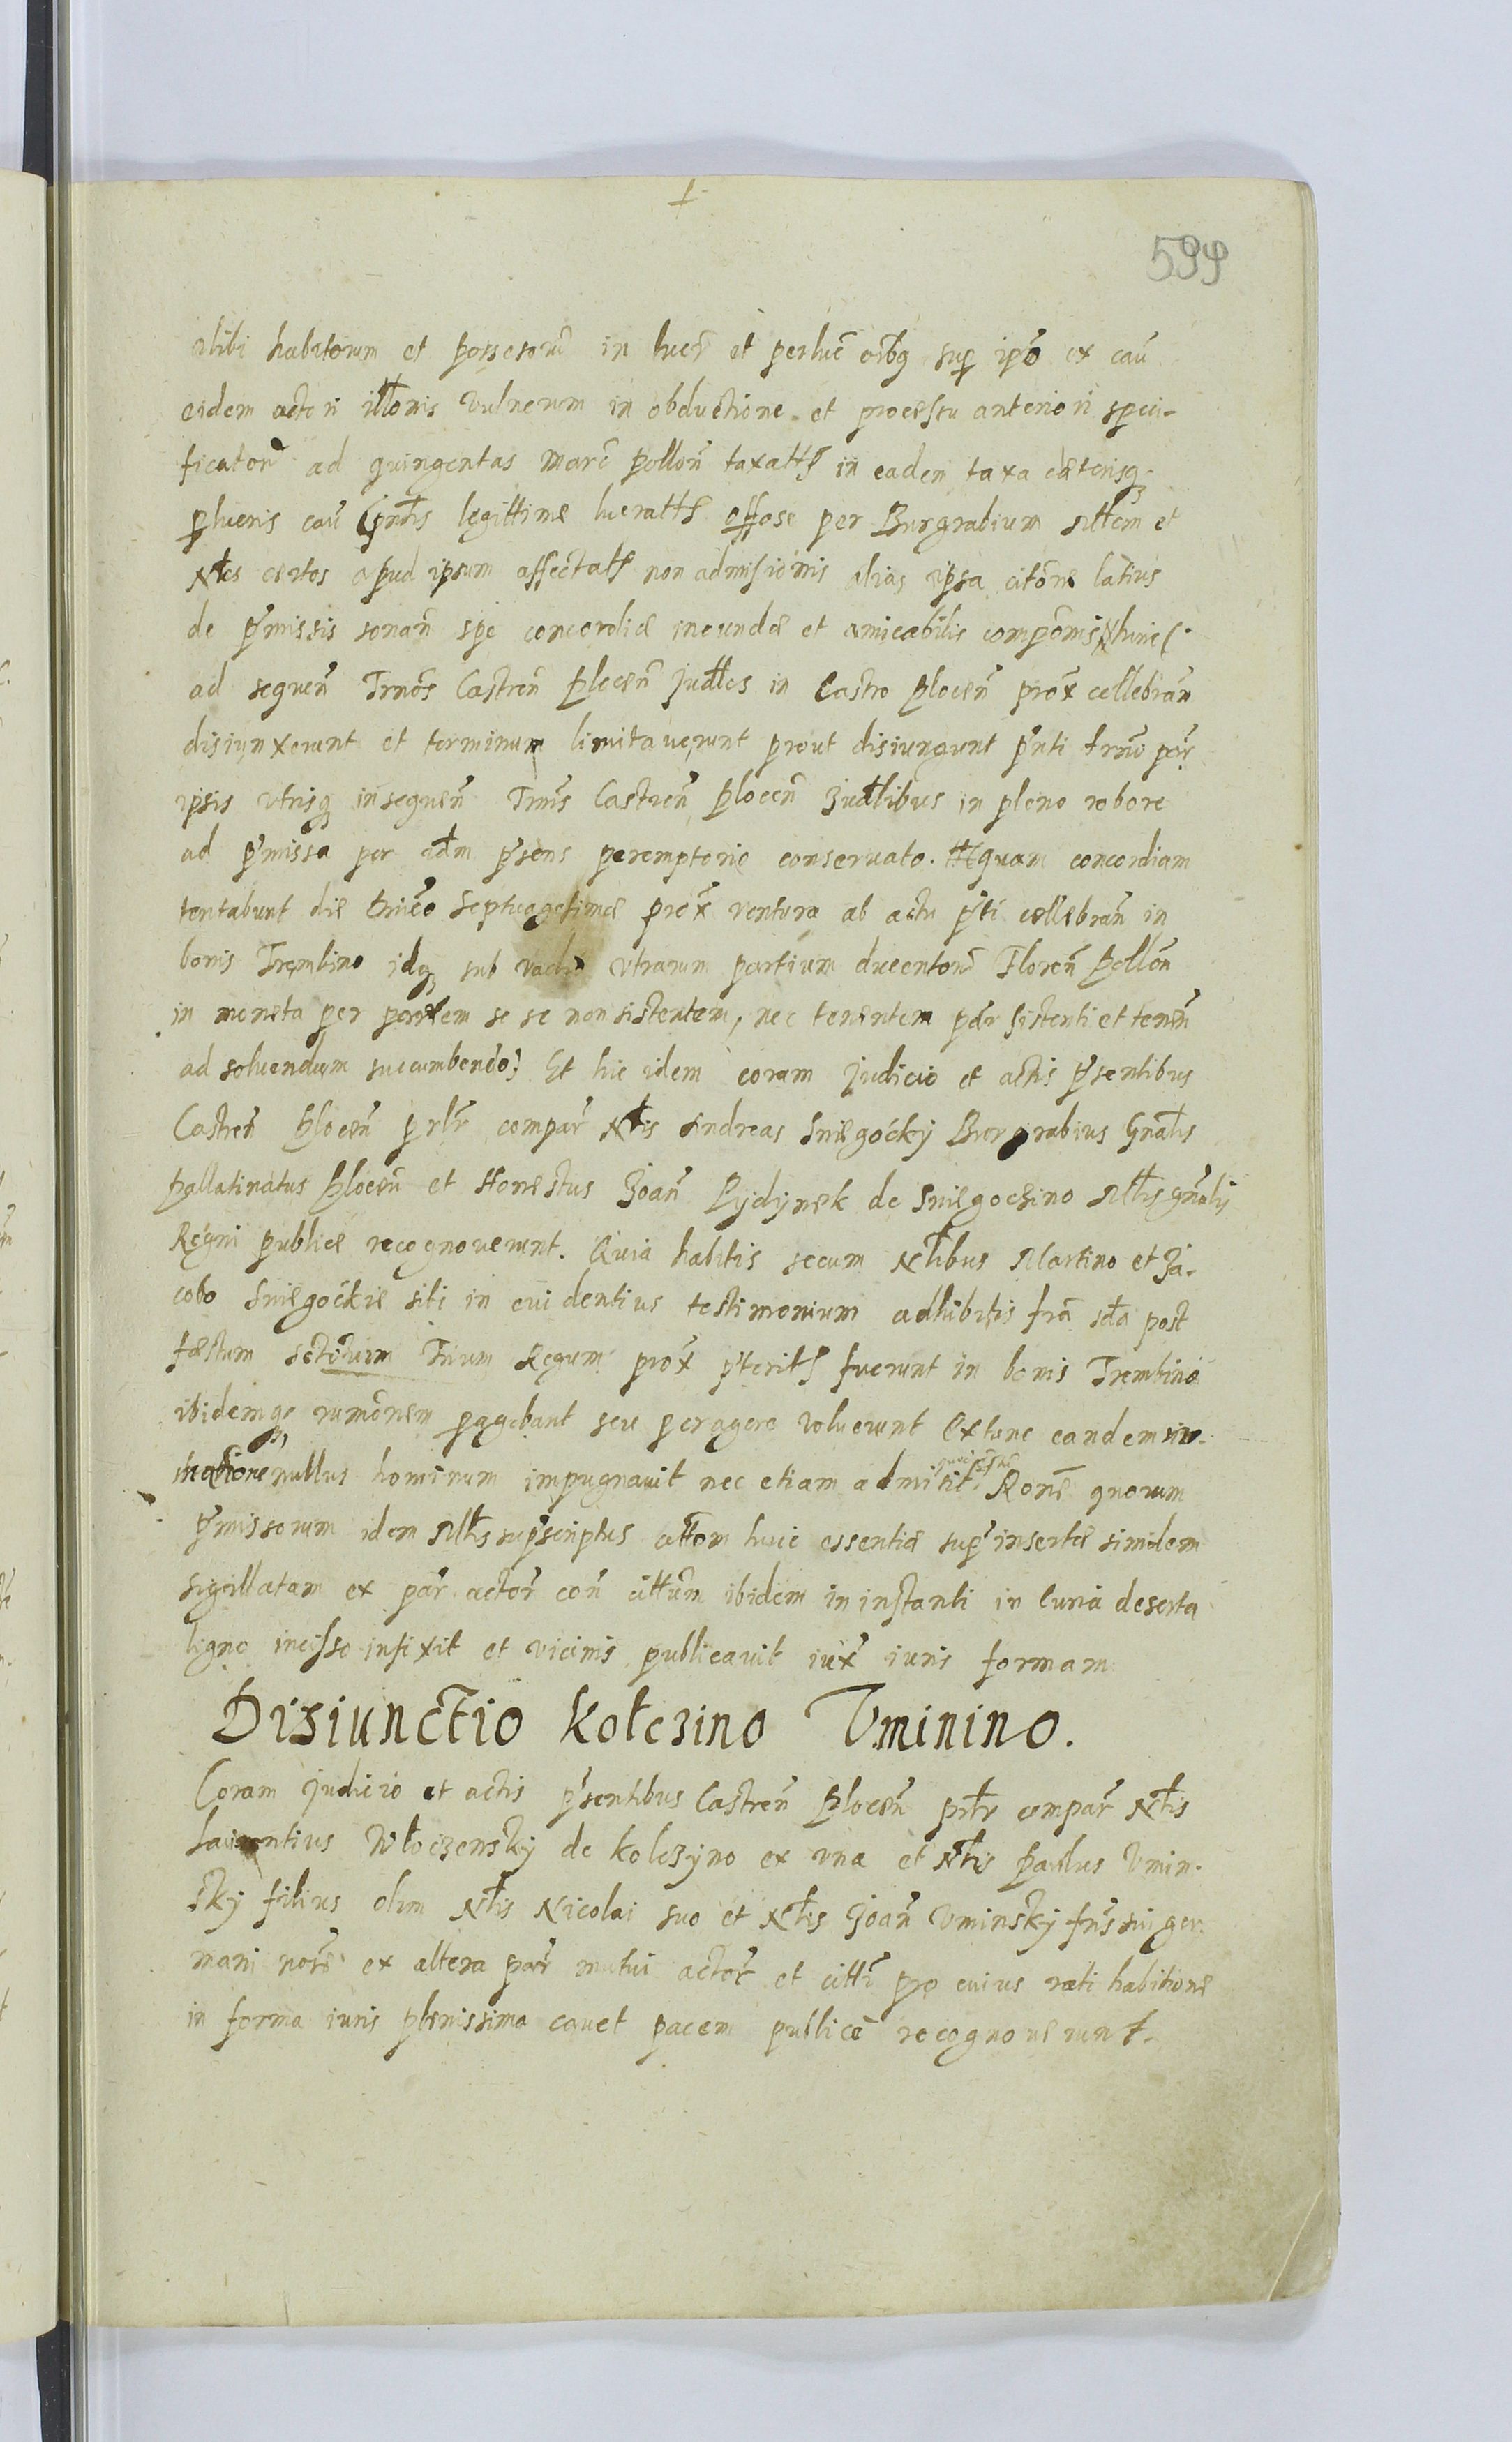 599
alibi habitorum et possesorũ in lucr̃ et perluc̃ oĩbq̃ sup̃ ip̃o ex caũ
eidem actori illõnis Vulnerum in obductione et processu anteriori speci-
ficator̃ ad quingentas Marc̃ pollõn taxatt̃ in eadem taxa cæterisq̃
p̃lucris caũ p̃ntis legittime lucratt̃ per Burgrabium Mt̃lem et
Nt̃es certos apud ipsum affectatt̃ non admisionis alias ipsa citõne latius
de p̃missis sonañ spe concordiæ ineundæ et amicabilis compõnis hinc
ad sequeñ Trmõs Castreñ Ploceñ Judt̃les in Castro Ploceñ prox̃ cellebrañ
disiunxerunt et terminum limitaverunt prout disiungunt p̃nti trm̃o par̃
ipsis utrisq̃ in sequeñ Trm̃s Castreñ Ploceñ Judt̃libus in pleno robore
ad p̃missa per id̃m p̃sens peremptorie conservato. quam concordiam
tentabunt die Septuagesimæ prox̃ ventura ab actu p̃ti cellebrañ in
bonis Trembino idq̃ sub vadio utrarum partium ducentor̃ Floreñ Pollõn
in moneta per partem se se non sistentem, nec tenentem par̃ sistenti et teneñ
ad solvendum succumbendo Et hic idem coram Judicio et actis p̃sentibus
Castreñ Ploceñ p̃rlr̃ compar̃ Nt̃lis Andreas Sniegoćky Burgrabius Gnãlis
Pallatinatus Ploceñ et Honestus Joañ Pydynek de Sniegoczino Mt̃lis gñalij
Regni publice recognoverunt. Quia habitis secum Nt̃libus Martino et Ja-
cobo Sniegoćkie sibi in evidentius testimonium adhibitis fr̃a sc̃da post
fæstum Trium Regum prox̃ p̃terit̃ fuerunt in bonis Trembino
ibidemq̃ rumõnem p̃agebant seu peragere voluerunt Extunc eandem
nullus hominum impugnavit nec etiam admisit. Rõne quorum
p̃missorum idem Mt̃lis sup̃scriptus citt̃om huic essentiæ sup̃ insertæ similem
sigillatam ex par̃ actor̃ coñ citt̃ũm ibidem in instanti in Curia deserta
ligno incisso infixit et vicinis publicavit iux̃ iuris formam
Disiunctio Kołczino Vminino.
Coram Judicio et actis p̃sentibus Castreñ Ploceñ p̃rlr̃ compar̃ Nt̃lis
Laurentius Włoczensky de Kolczyno ex una et Nt̃lis Paulus Vmin-
sky filius olim Nt̃lis Nicolai suo et Nt̃lis Joañ Vminsky frĩs sui ger-
mani nõie ex altera par̃ mutui actor̃ et citt̃i pro cuius rati habitione
in forma iuris plenissima cavet pacem publice recognoverunt.